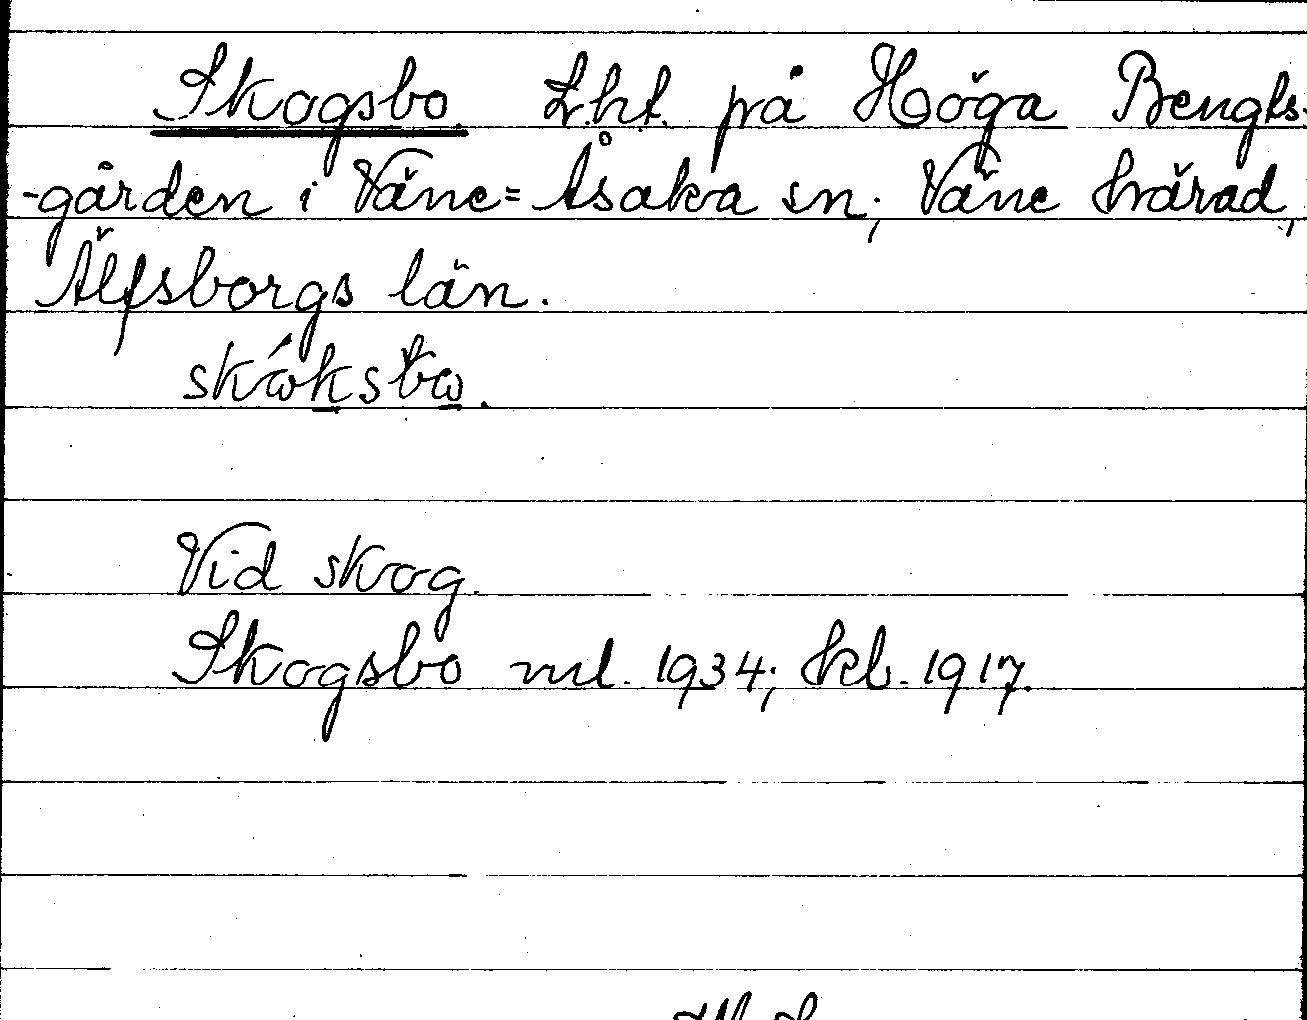 Skogsbo. Lht. på Höga Bengts-
-gården i Väne=Åsaka sn; Väne härad,
Älfsborgs län.
Vid skog.
Skogsbo ml. 1934; kb. 1917.